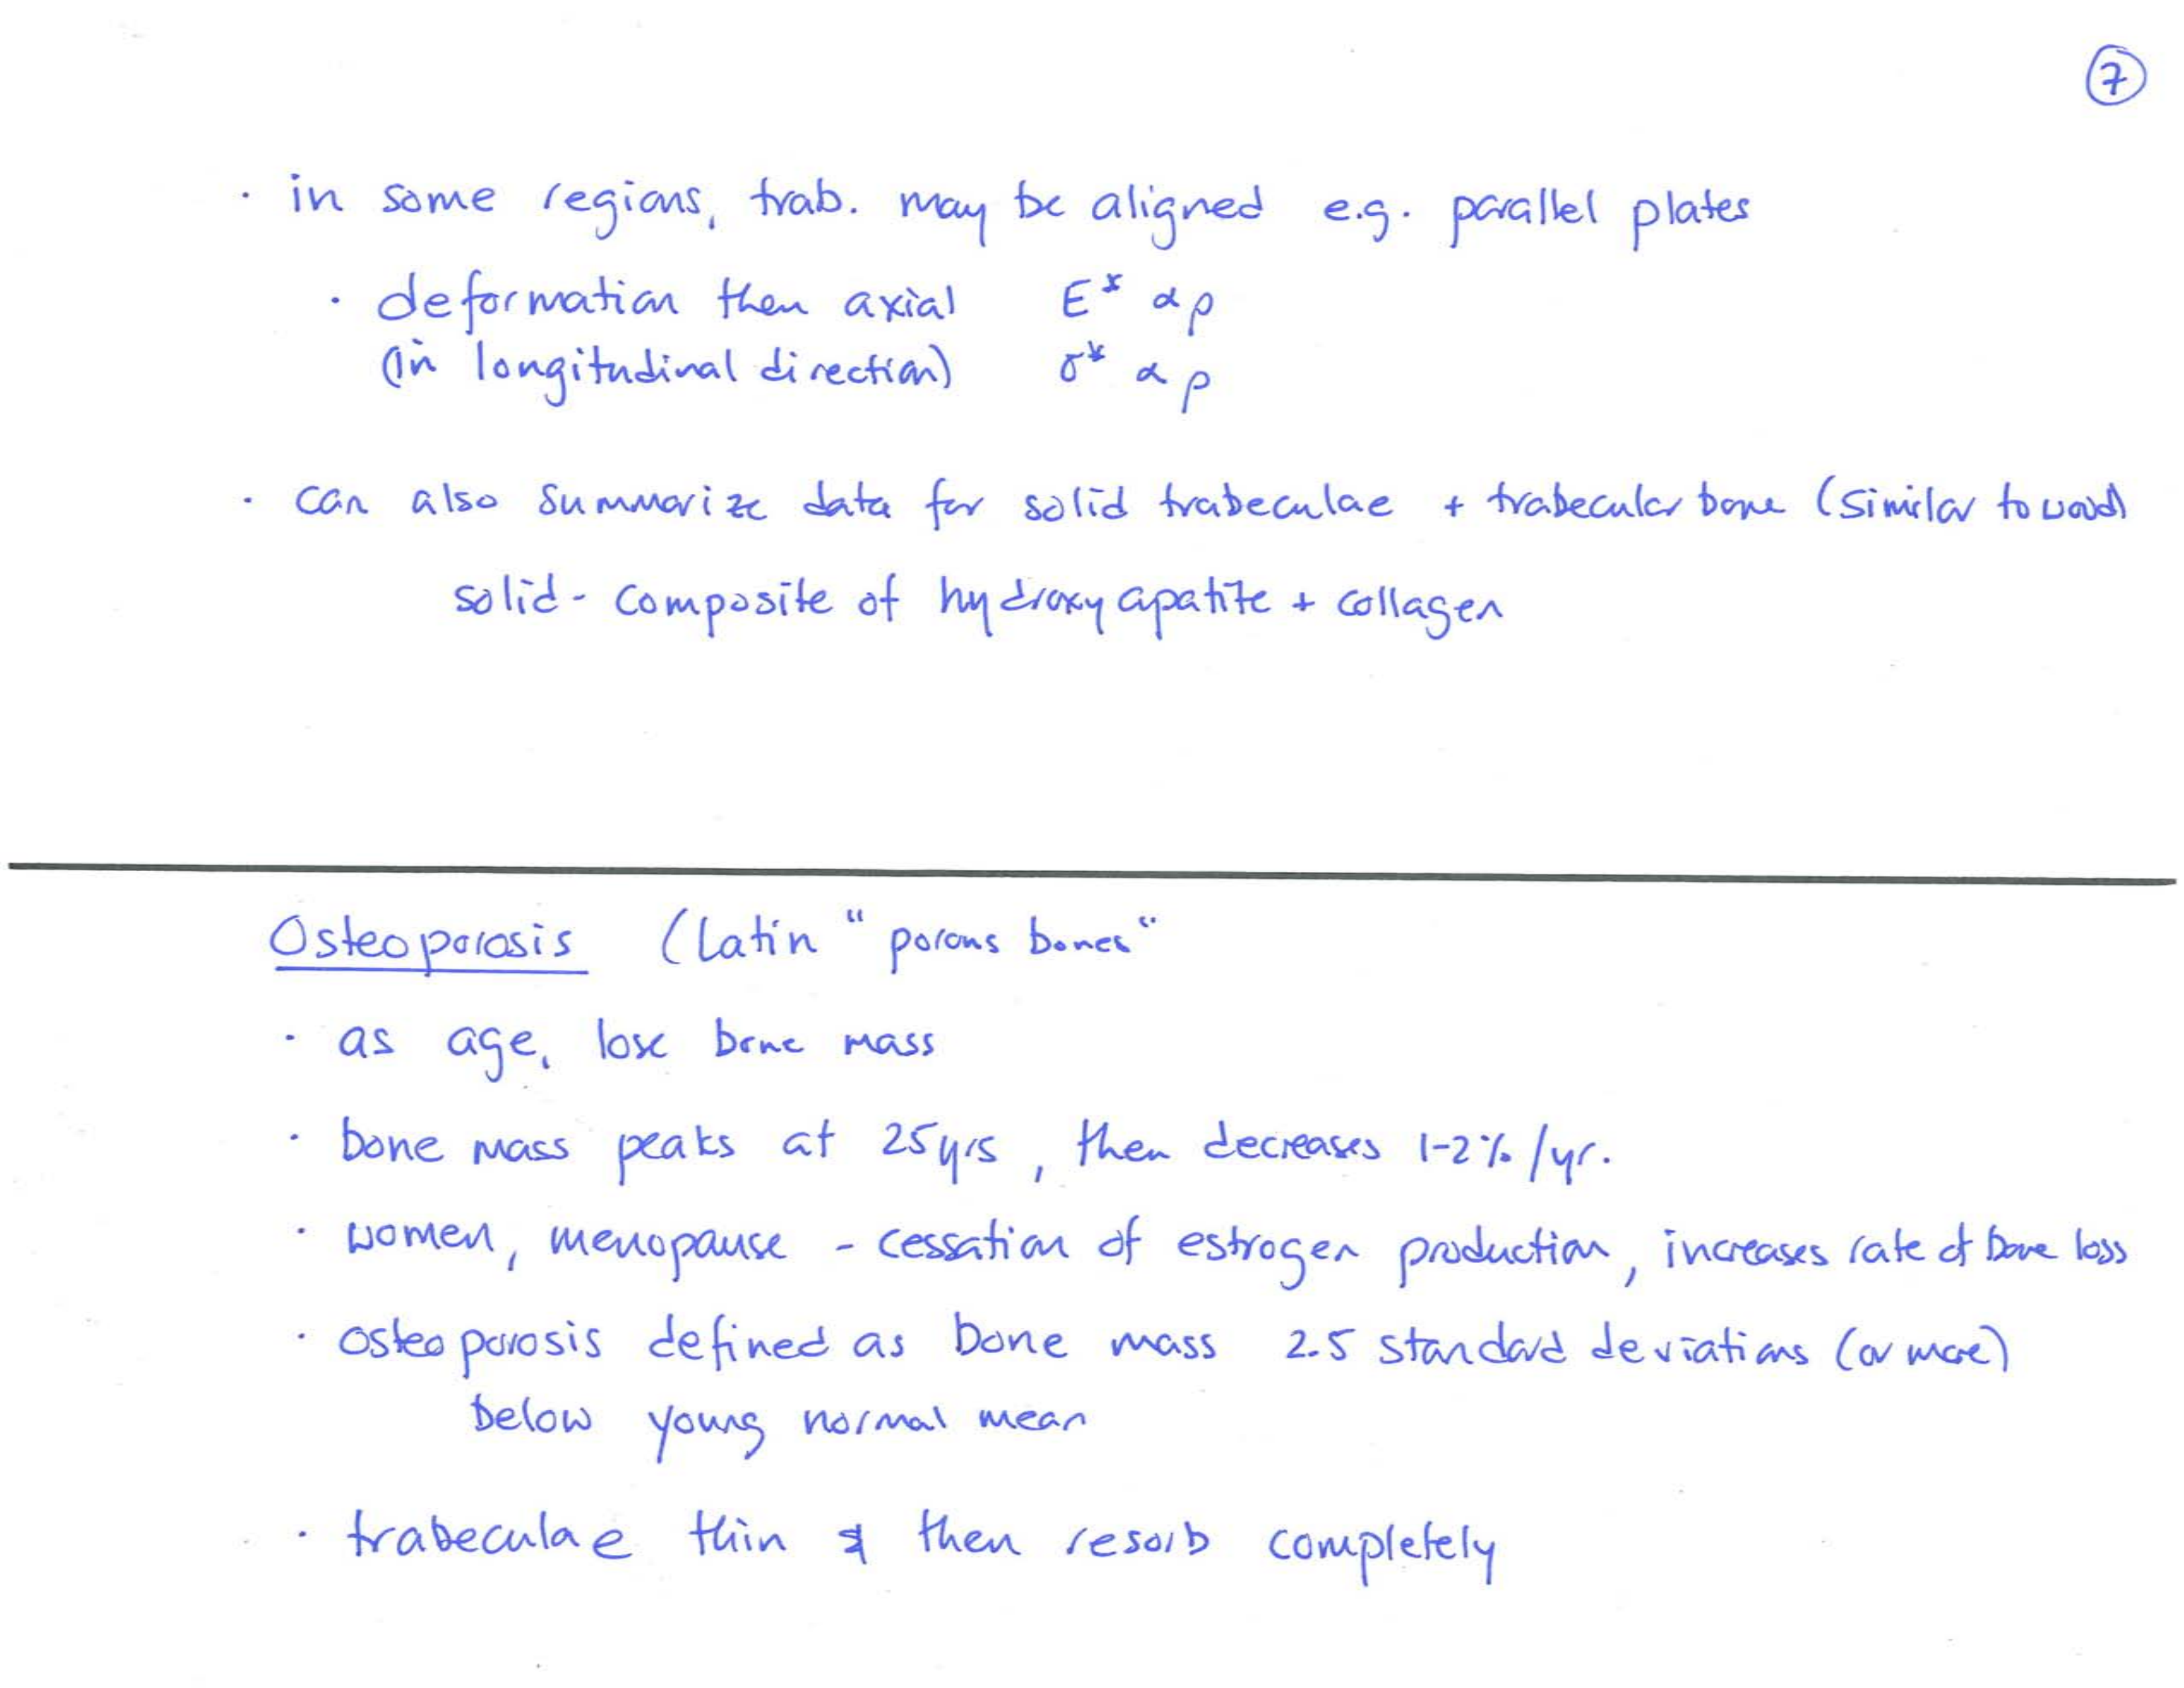 7
· in some regions, trab. may be aligned e.g. parallel plates
· deformation then axial E* α ρ
(in longitudinal direction) σ* α ρ
· can also summarize data for solid trabeculae + trabecular bone (similar to wood)
solid - composite of hydroxyapatite + collagen
Osteoporosis (Latin "porous bones"
· as age, lose bone mass
· bone mass peaks at 25yrs, then decreases 1-2%/yr.
· women, menopause - cessation of estrogen production, increases rate of bone loss
· osteoporosis defined as bone mass 2.5 standard deviations (or more)
below young normal mean
· trabeculae thin & then resorb completely